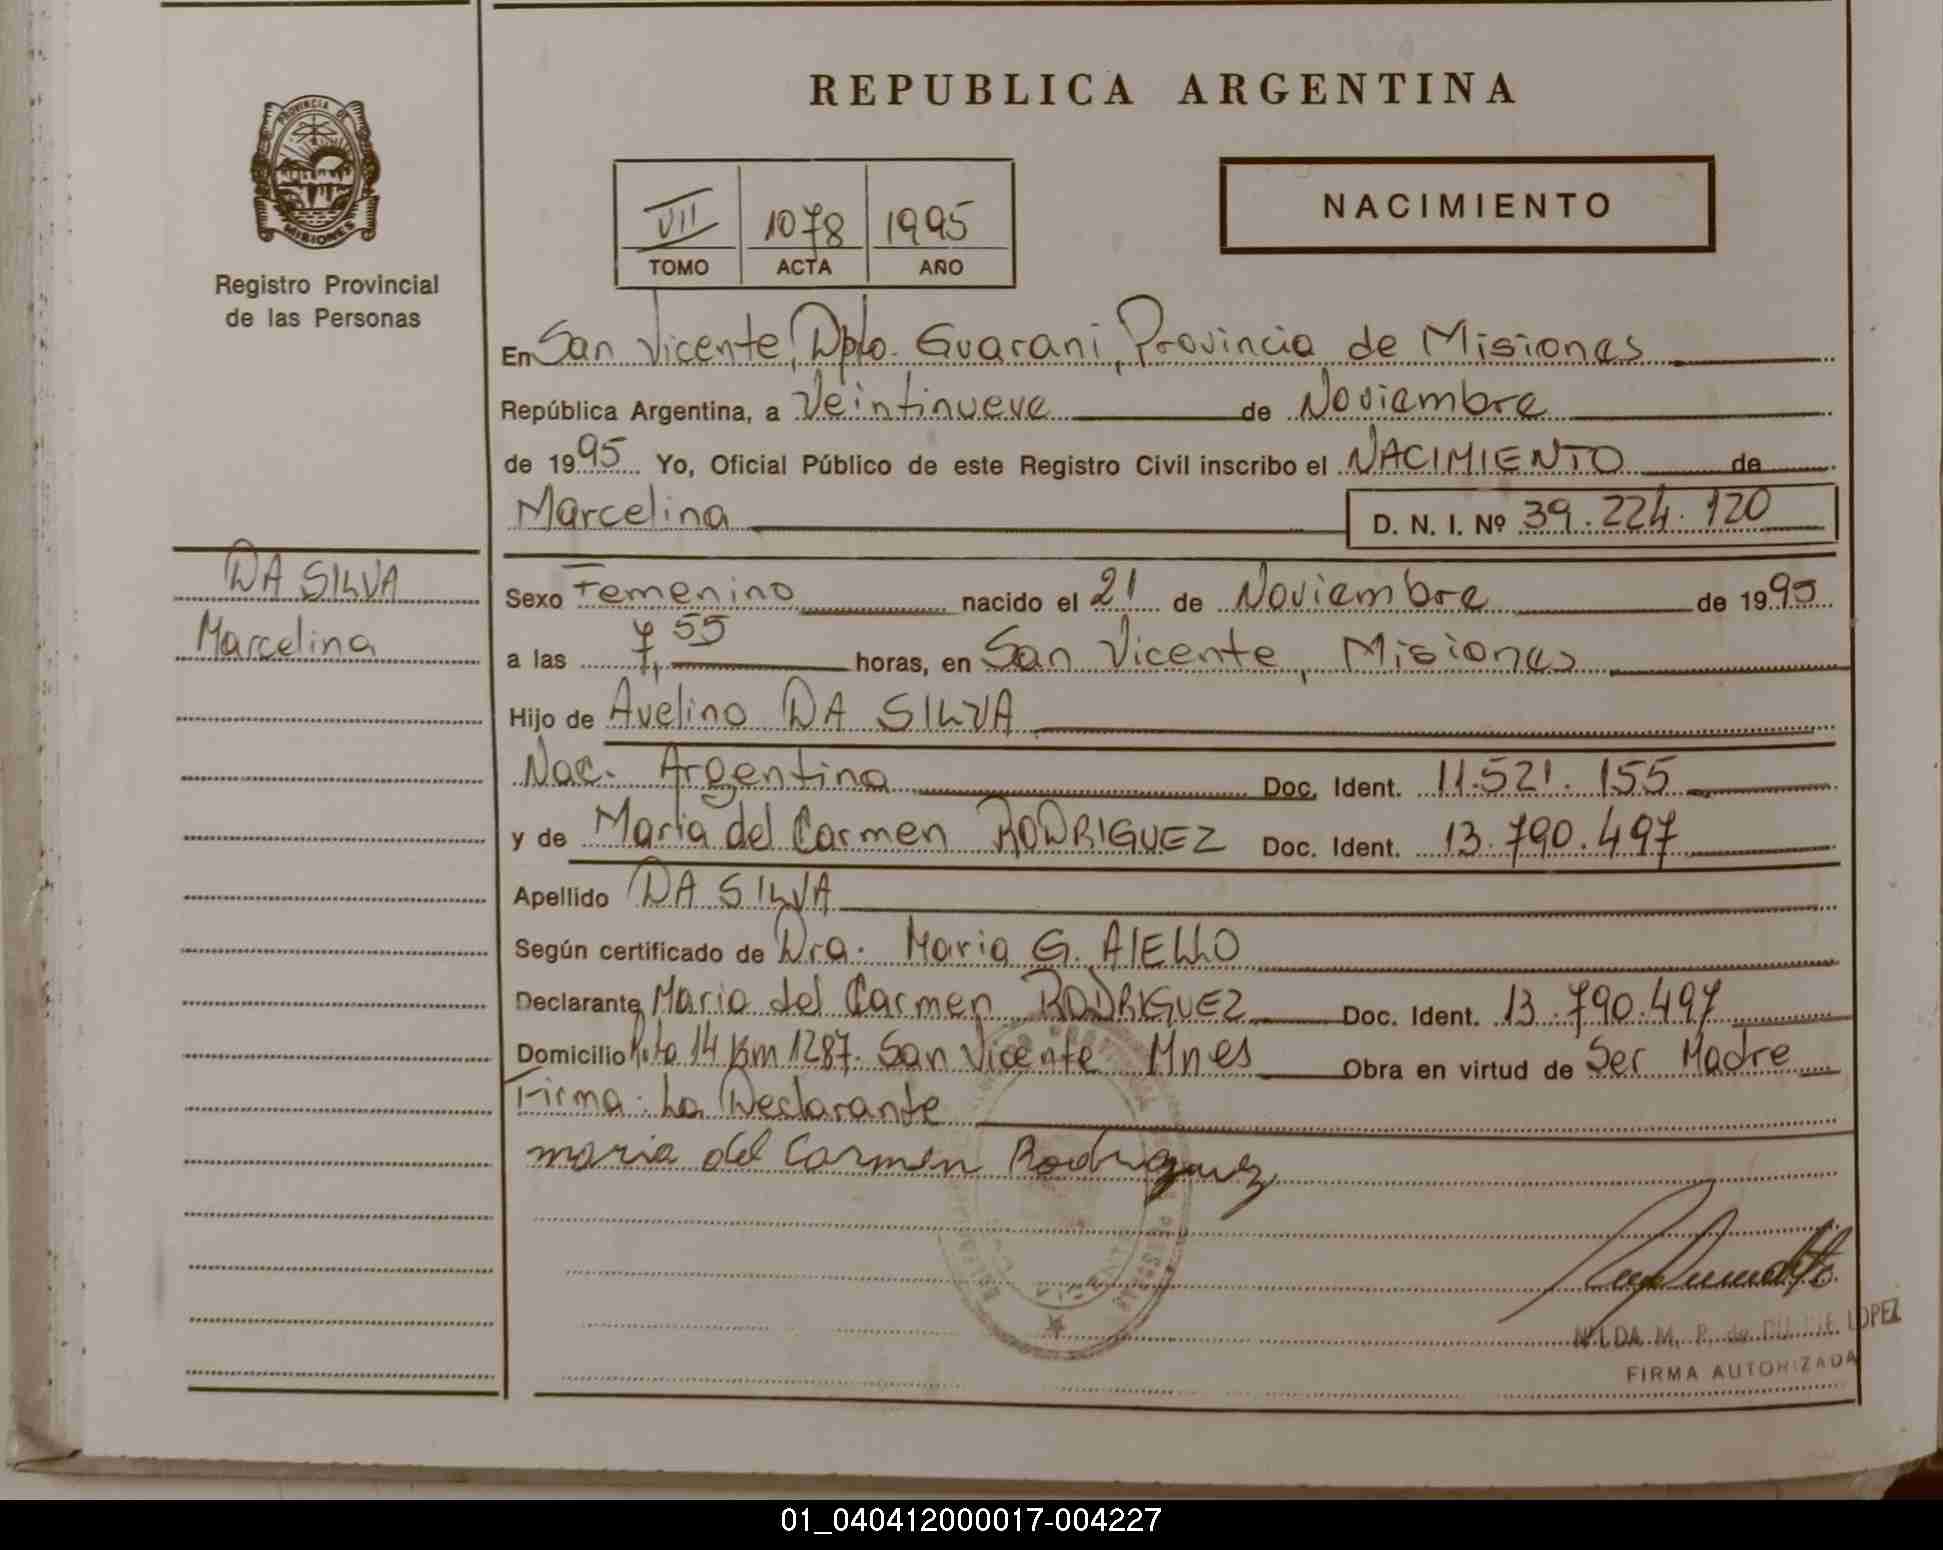 REPUBLICA ARGENTINA
PROVINCIA DE
MISIONES
Registro Provincial
de las Personas
VII 1078 1995
TOMO ACTA AÑO
NACIMIENTO
En San Vicente, Dpto. Guarani, Provincia de Misiones
República Argentina, a Veintinueve de Noviembre
de 1995 Yo, Oficial Público de este Registro Civil inscribo el NACIMIENTO de
Marcelina D. N. I. Nº 39.224.120
DA SILVA
Marcelina
Sexo Femenino nacido el 21 de Noviembre de 1995
a las 7,55 horas, en San Vicente, Misiones
Hijo de Avelino DA SILVA
Nac. Argentina Doc. Ident. 11.521.155
y de Maria del Carmen RODRIGUEZ Doc. Ident. 13.790.497
Apellido DA SILVA
Según certificado de Dra. Maria G. AIELLO
Declarante Maria del Carmen RODRIGUEZ Doc. Ident. 13.790.497
Domicilio Ruta 14 Km 1287. San Vicente Mnes Obra en virtud de Ser Madre
Firma: La Declarante
maria del Carmen Rodriguez
NILDA M. P. de LOPEZ
FIRMA AUTORIZADA
01_040412000017-004227